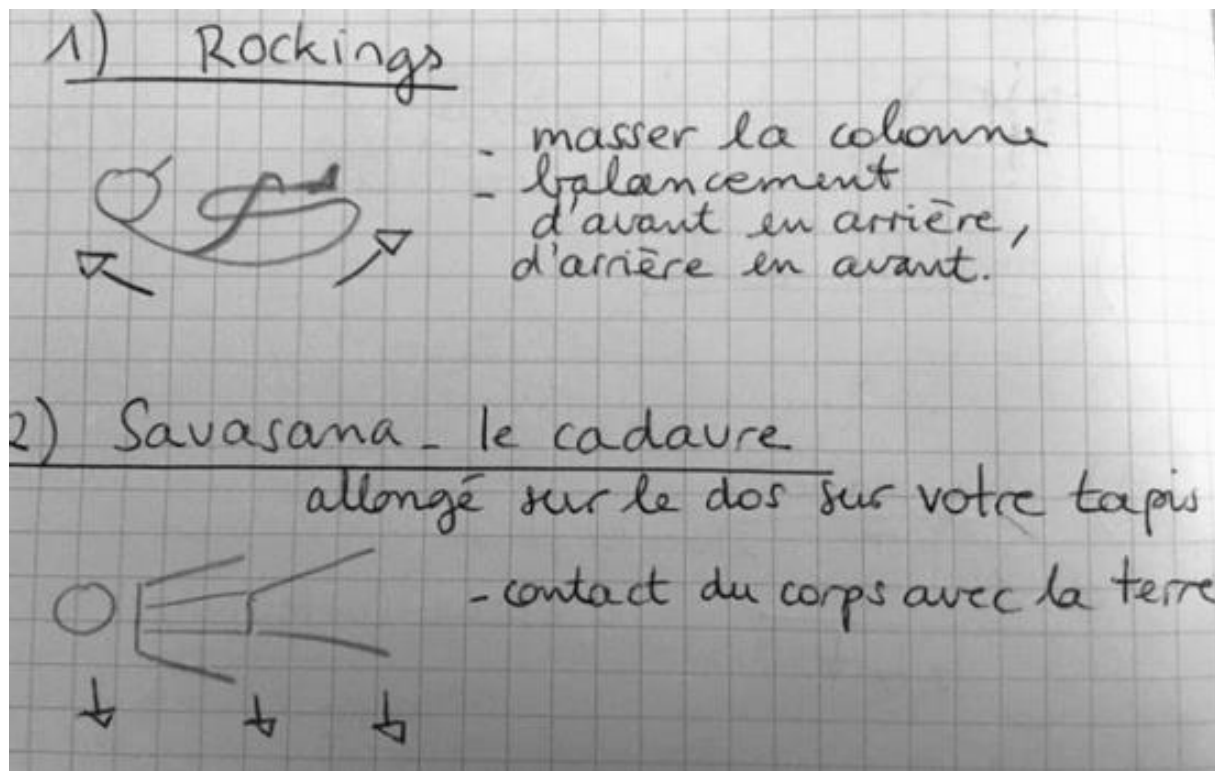 1) Rockings
- masser la colonne
- balancement
d'avant en arrière,
d'arrière en avant.
2) Savasana - le cadavre
allongé sur le dos sur votre tapis
- contact du corps avec la terre